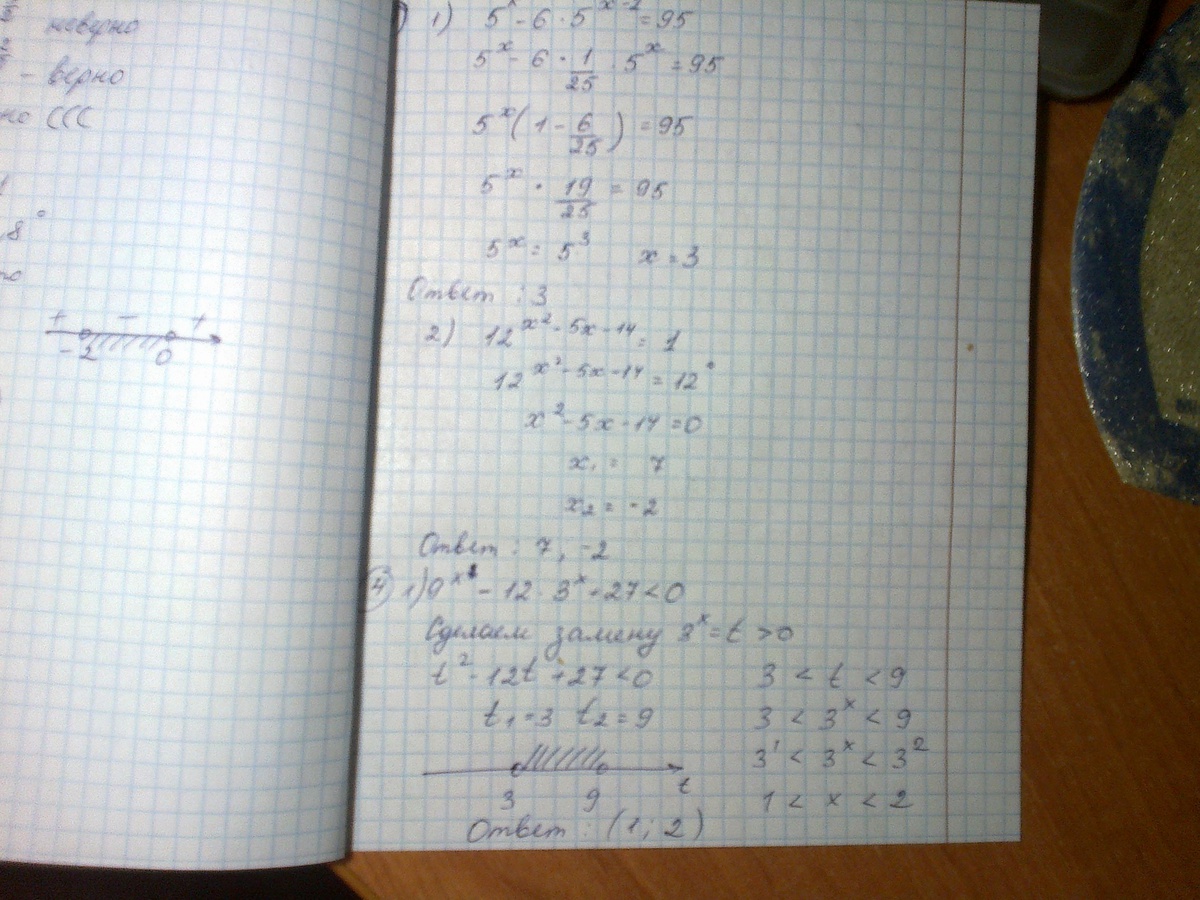 неверно
- верно
CCC
8°
+ - +
-2 0
1) 5^x - 6 · 5^(x-2) = 95
5^x - 6 · 1/25 · 5^x = 95
5^x (1 - 6/25) = 95
5^x · 19/25 = 95
5^x = 5^3 x = 3
Ответ : 3
2) 12^(x²-5x-14) = 1
12^(x²-5x-14) = 12^0
x² - 5x - 14 = 0
x₁ = 7
x₂ = -2
Ответ : 7, -2
④ 1) 9^x - 12 · 3^x + 27 < 0
Сделаем замену 3^x = t > 0
t² - 12t + 27 < 0 3 < t < 9
t₁ = 3 t₂ = 9 3 < 3^x < 9
3^1 < 3^x < 3^2
3 9 t 1 < x < 2
Ответ : (1; 2)